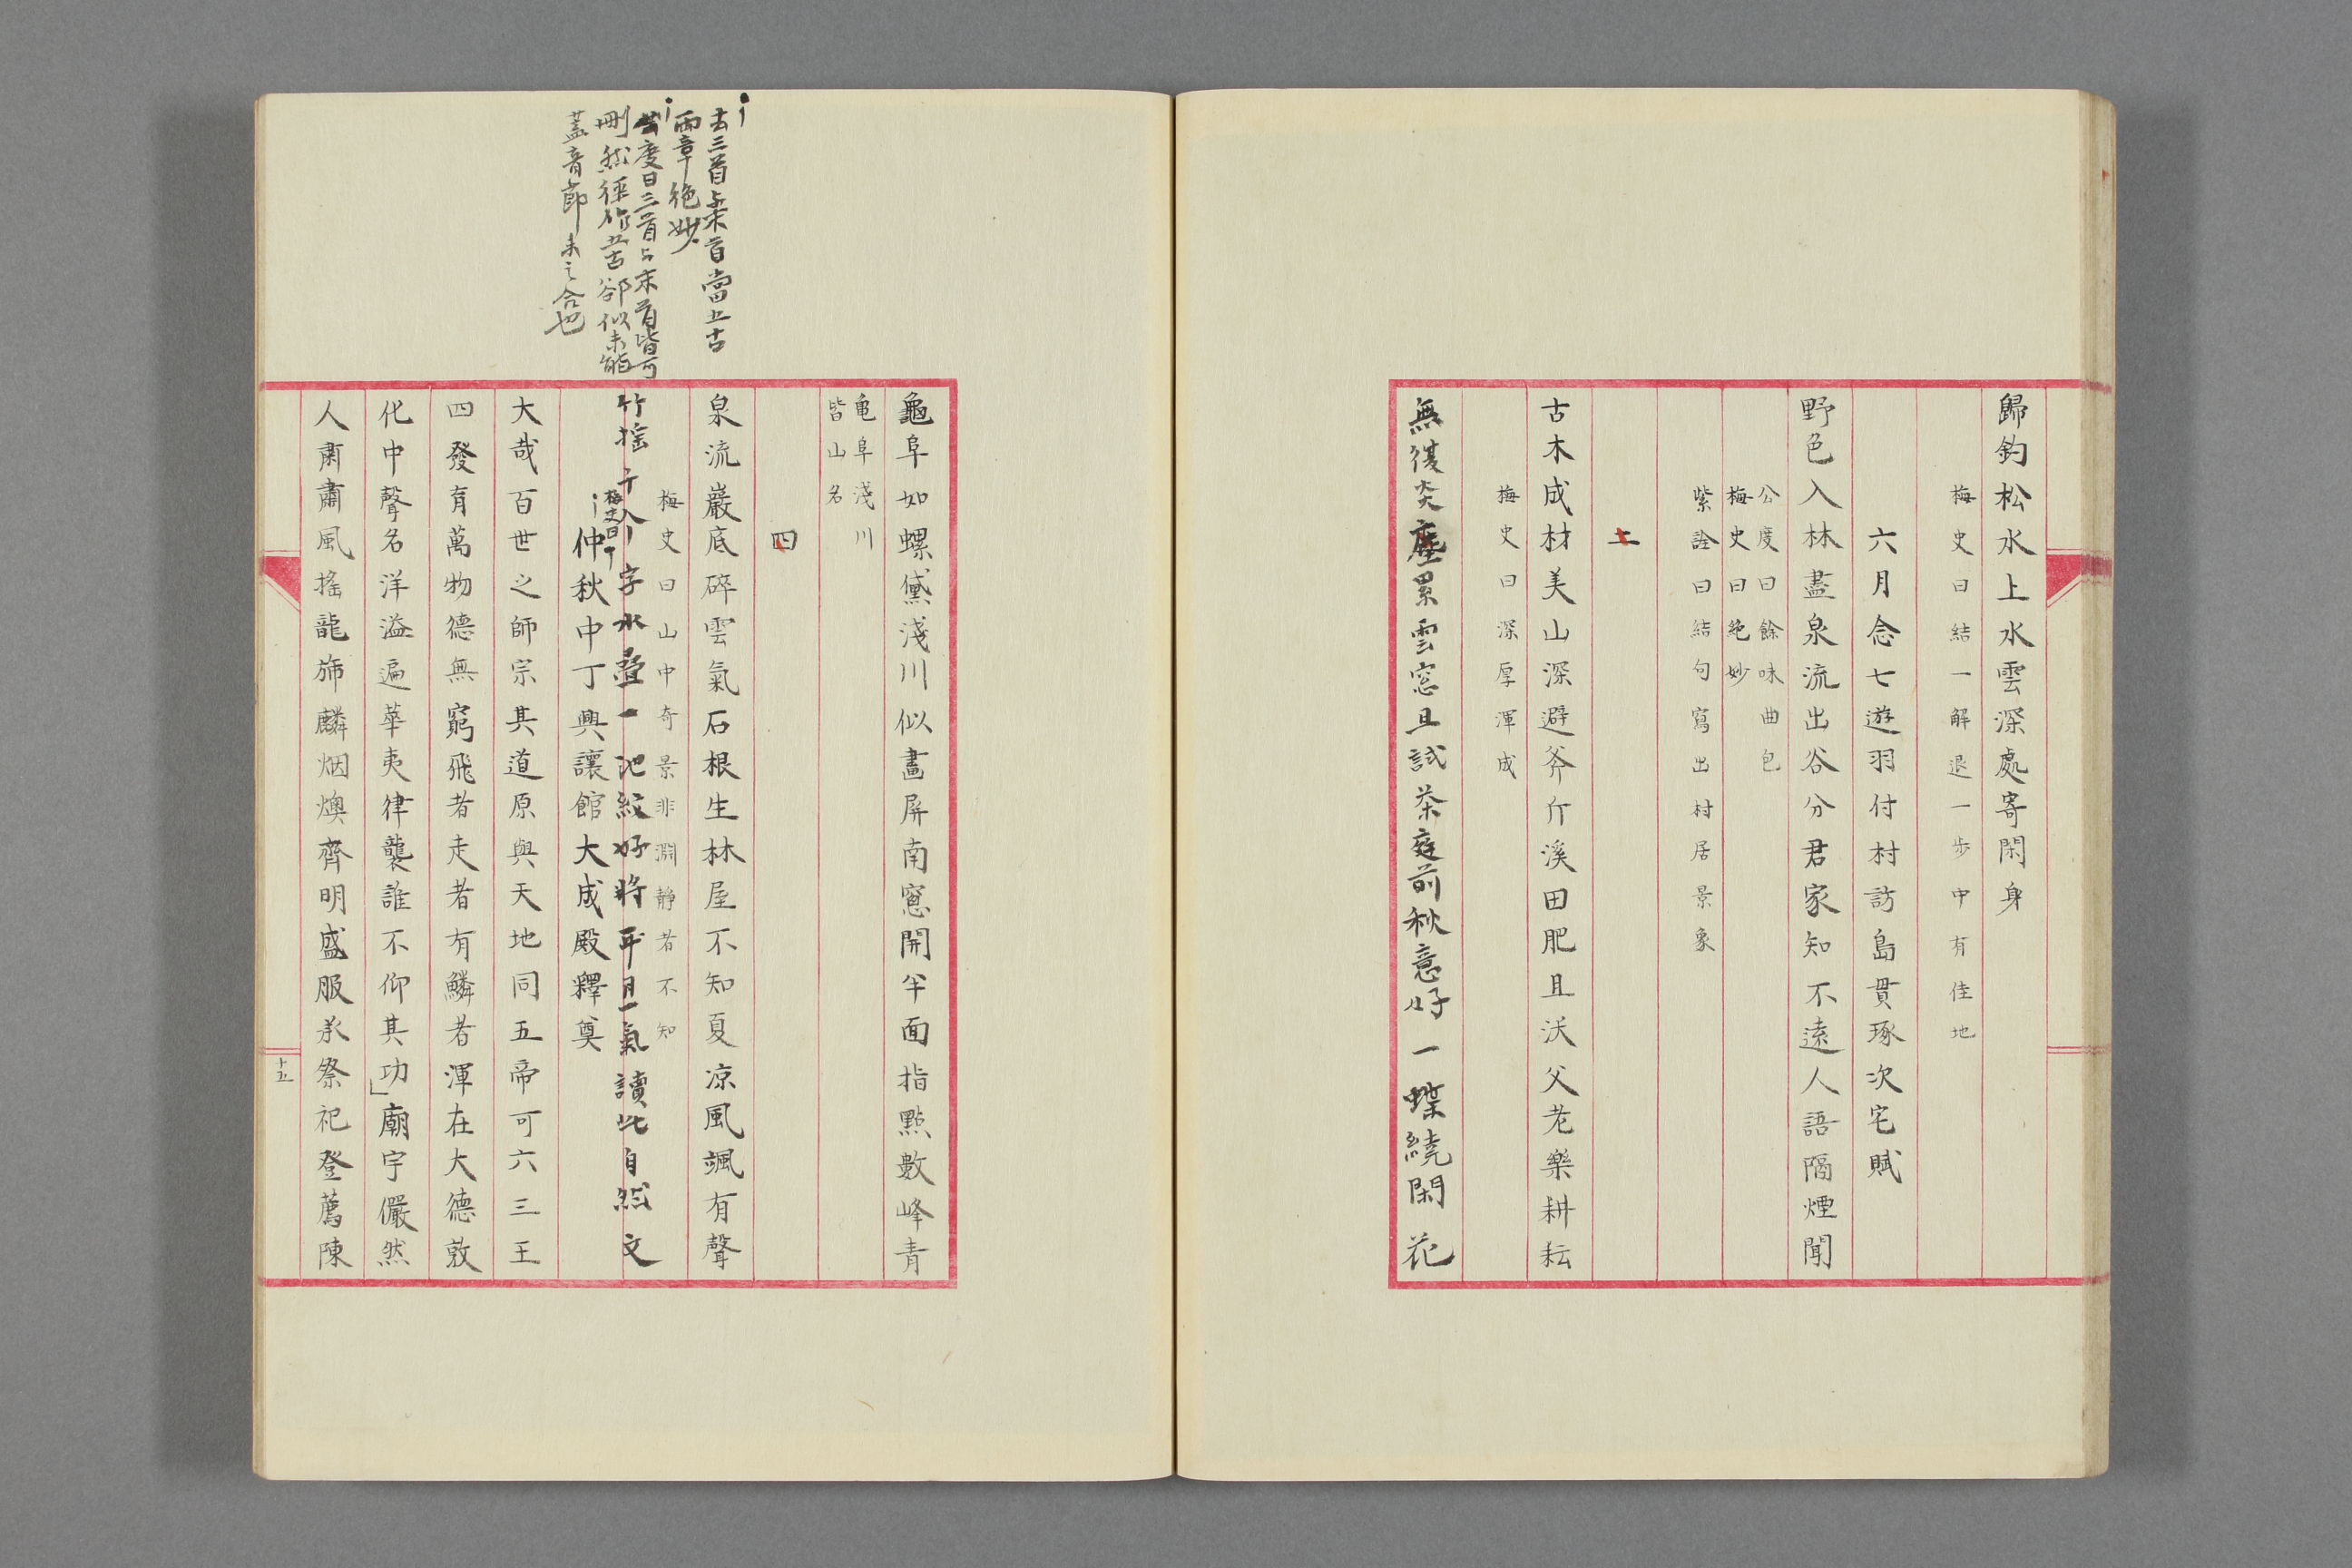 歸釣松水上水雲深處寄閑身
梅史曰結一解退一步中有佳地
六月念七遊羽付村訪島貫琢次宅賦
野色入林盡泉流出谷分君家知不遠人語隔煙聞
公度曰餘味曲包
梅史曰絶妙
紫詮曰結句寫出村居景象
二
古木成材美山深避斧斤溪田肥且沃父老樂耕耘
梅史曰深厚渾成
無復炎塵累雲窓且試茶庭前秋意好一蝶繞閑花
龜阜如螺黛淺川似畫屏南窓開半面指點數峰青
亀阜淺川
皆山名
四
泉流巖底碎雲氣石根生林屋不知夏凉風颯有聲
梅史曰山中奇景非淵靜者不知
竹搖千个字水疊一池紋好將平旦氣讀此自然文
梅史曰
仲秋中丁興讓館大成殿釋奠
大哉百世之師宗其道原與天地同五帝可六三王
四發育萬物德無窮飛者走者有鱗者渾在大德敦
化中聲名洋溢遍華夷律襲誰不仰其功」廟宇儼然
人肅肅風搖龍旆麟烟燠齊明盛服承祭祀登薦陳
十五
去三首末首當五古
兩章絶妙
公度曰三首与末首皆可
刪然徑作五古郤似未能
蓋音節未之合也